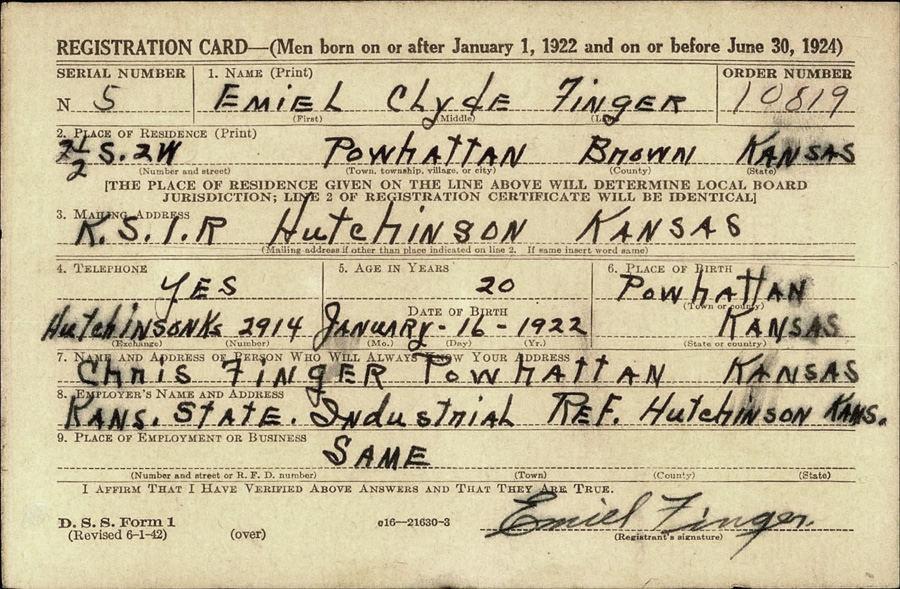 REGISTRATION CARD—(Men born on or after January 1, 1922 and on or before June 30, 1924)
SERIAL NUMBER 1. NAME (Print) ORDER NUMBER
N 5 EMIEL ClydE FINGER 10819
(First) (Middle)
2. PLACE OF RESIDENCE (Print)
S. 2W POWhATTAN BROWN KANSAS
(Number and street) (Town, township, village, or city) (County) (State)
[THE PLACE OF RESIDENCE GIVEN ON THE LINE ABOVE WILL DETERMINE LOCAL BOARD
JURISDICTION; LINE 2 OF REGISTRATION CERTIFICATE WILL BE IDENTICAL]
3. MAILING ADDRESS
K.S.I.R HutchINSON KANSAS
(Mailing address if other than place indicated on line 2. If same insert word same)
4. TELEPHONE 5. AGE IN YEARS 6. PLACE OF BIRTH
YES 20 POWhATTAN
DATE OF BIRTH (Town or county)
HutchINSON Ks 2914 JANUARY-16-1922 KANSAS
(Exchange) (Number) (Mo.) (Day) (Yr.) (State or country)
7. NAME AND ADDRESS OF PERSON WHO WILL ALWAYS KNOW YOUR ADDRESS
ChRIS FINGER POWhATTAN KANSAS
8. EMPLOYER'S NAME AND ADDRESS
KANS. STATE. Industrial REF. HutchINSON KANS.
9. PLACE OF EMPLOYMENT OR BUSINESS
SAME
(Number and street or R. F. D. number) (Town) (County) (State)
I AFFIRM THAT I HAVE VERIFIED ABOVE ANSWERS AND THAT THEY ARE TRUE.
D. S. S. Form 1
(Revised 6-1-42) (over) c16—21630-3 Emiel Finger.
(Registrant's signature)